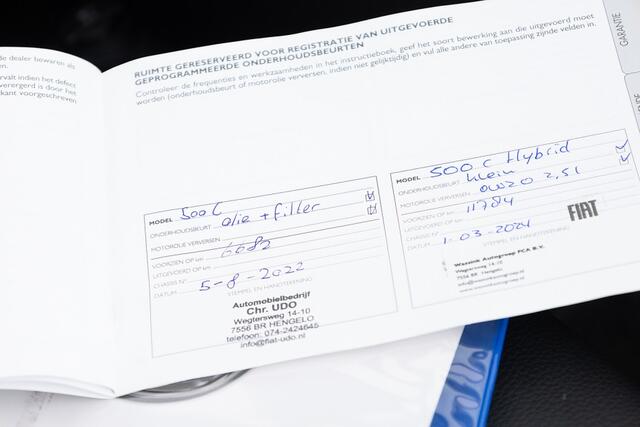 de dealer bewaren als
en.
ervalt indien het defect
verergerd is door het
kant voorgeschreven
RUIMTE GERESERVEERD VOOR REGISTRATIE VAN UITGEVOERDE
GEPROGRAMMEERDE ONDERHOUDSBEURTEN
Controleer de frequenties en werkzaamheden in het instructieboek, geef het soort bewerking aan die uitgevoerd moet
worden (onderhoudsbeurt of motorolie verversen, indien niet gelijktijdig) en vul alle andere van toepassing zijnde velden in.
GARANTIE
MODEL 500 C
ONDERHOUDSBEURT Olie + filler
MOTOROLIE VERVERSEN
VOORZIEN OP km 6682
UITGEVOERD OP km
CHASSIS N°
DATUM 5-8-2022
STEMPEL EN HANDTEKENING
Automobielbedrijf
Chr. UDO
Wegtersweg 14-10
7556 BR HENGELO
telefoon: 074-2424645
info@fiat-udo.nl
MODEL 500 C Hybrid
ONDERHOUDSBEURT klein
MOTOROLIE VERVERSEN 0W20 2,5l
VOORZIEN OP km 11784
UITGEVOERD OP km
CHASSIS N°
DATUM 1-03-2024
STEMPEL EN HANDTEKENING
FIAT
Wassink Autogroep FCA B.V.
Wegtersweg 14-10
7556 BR Hengelo
info@wassinkautogroep.nl
www.wassinkautogroep.nl